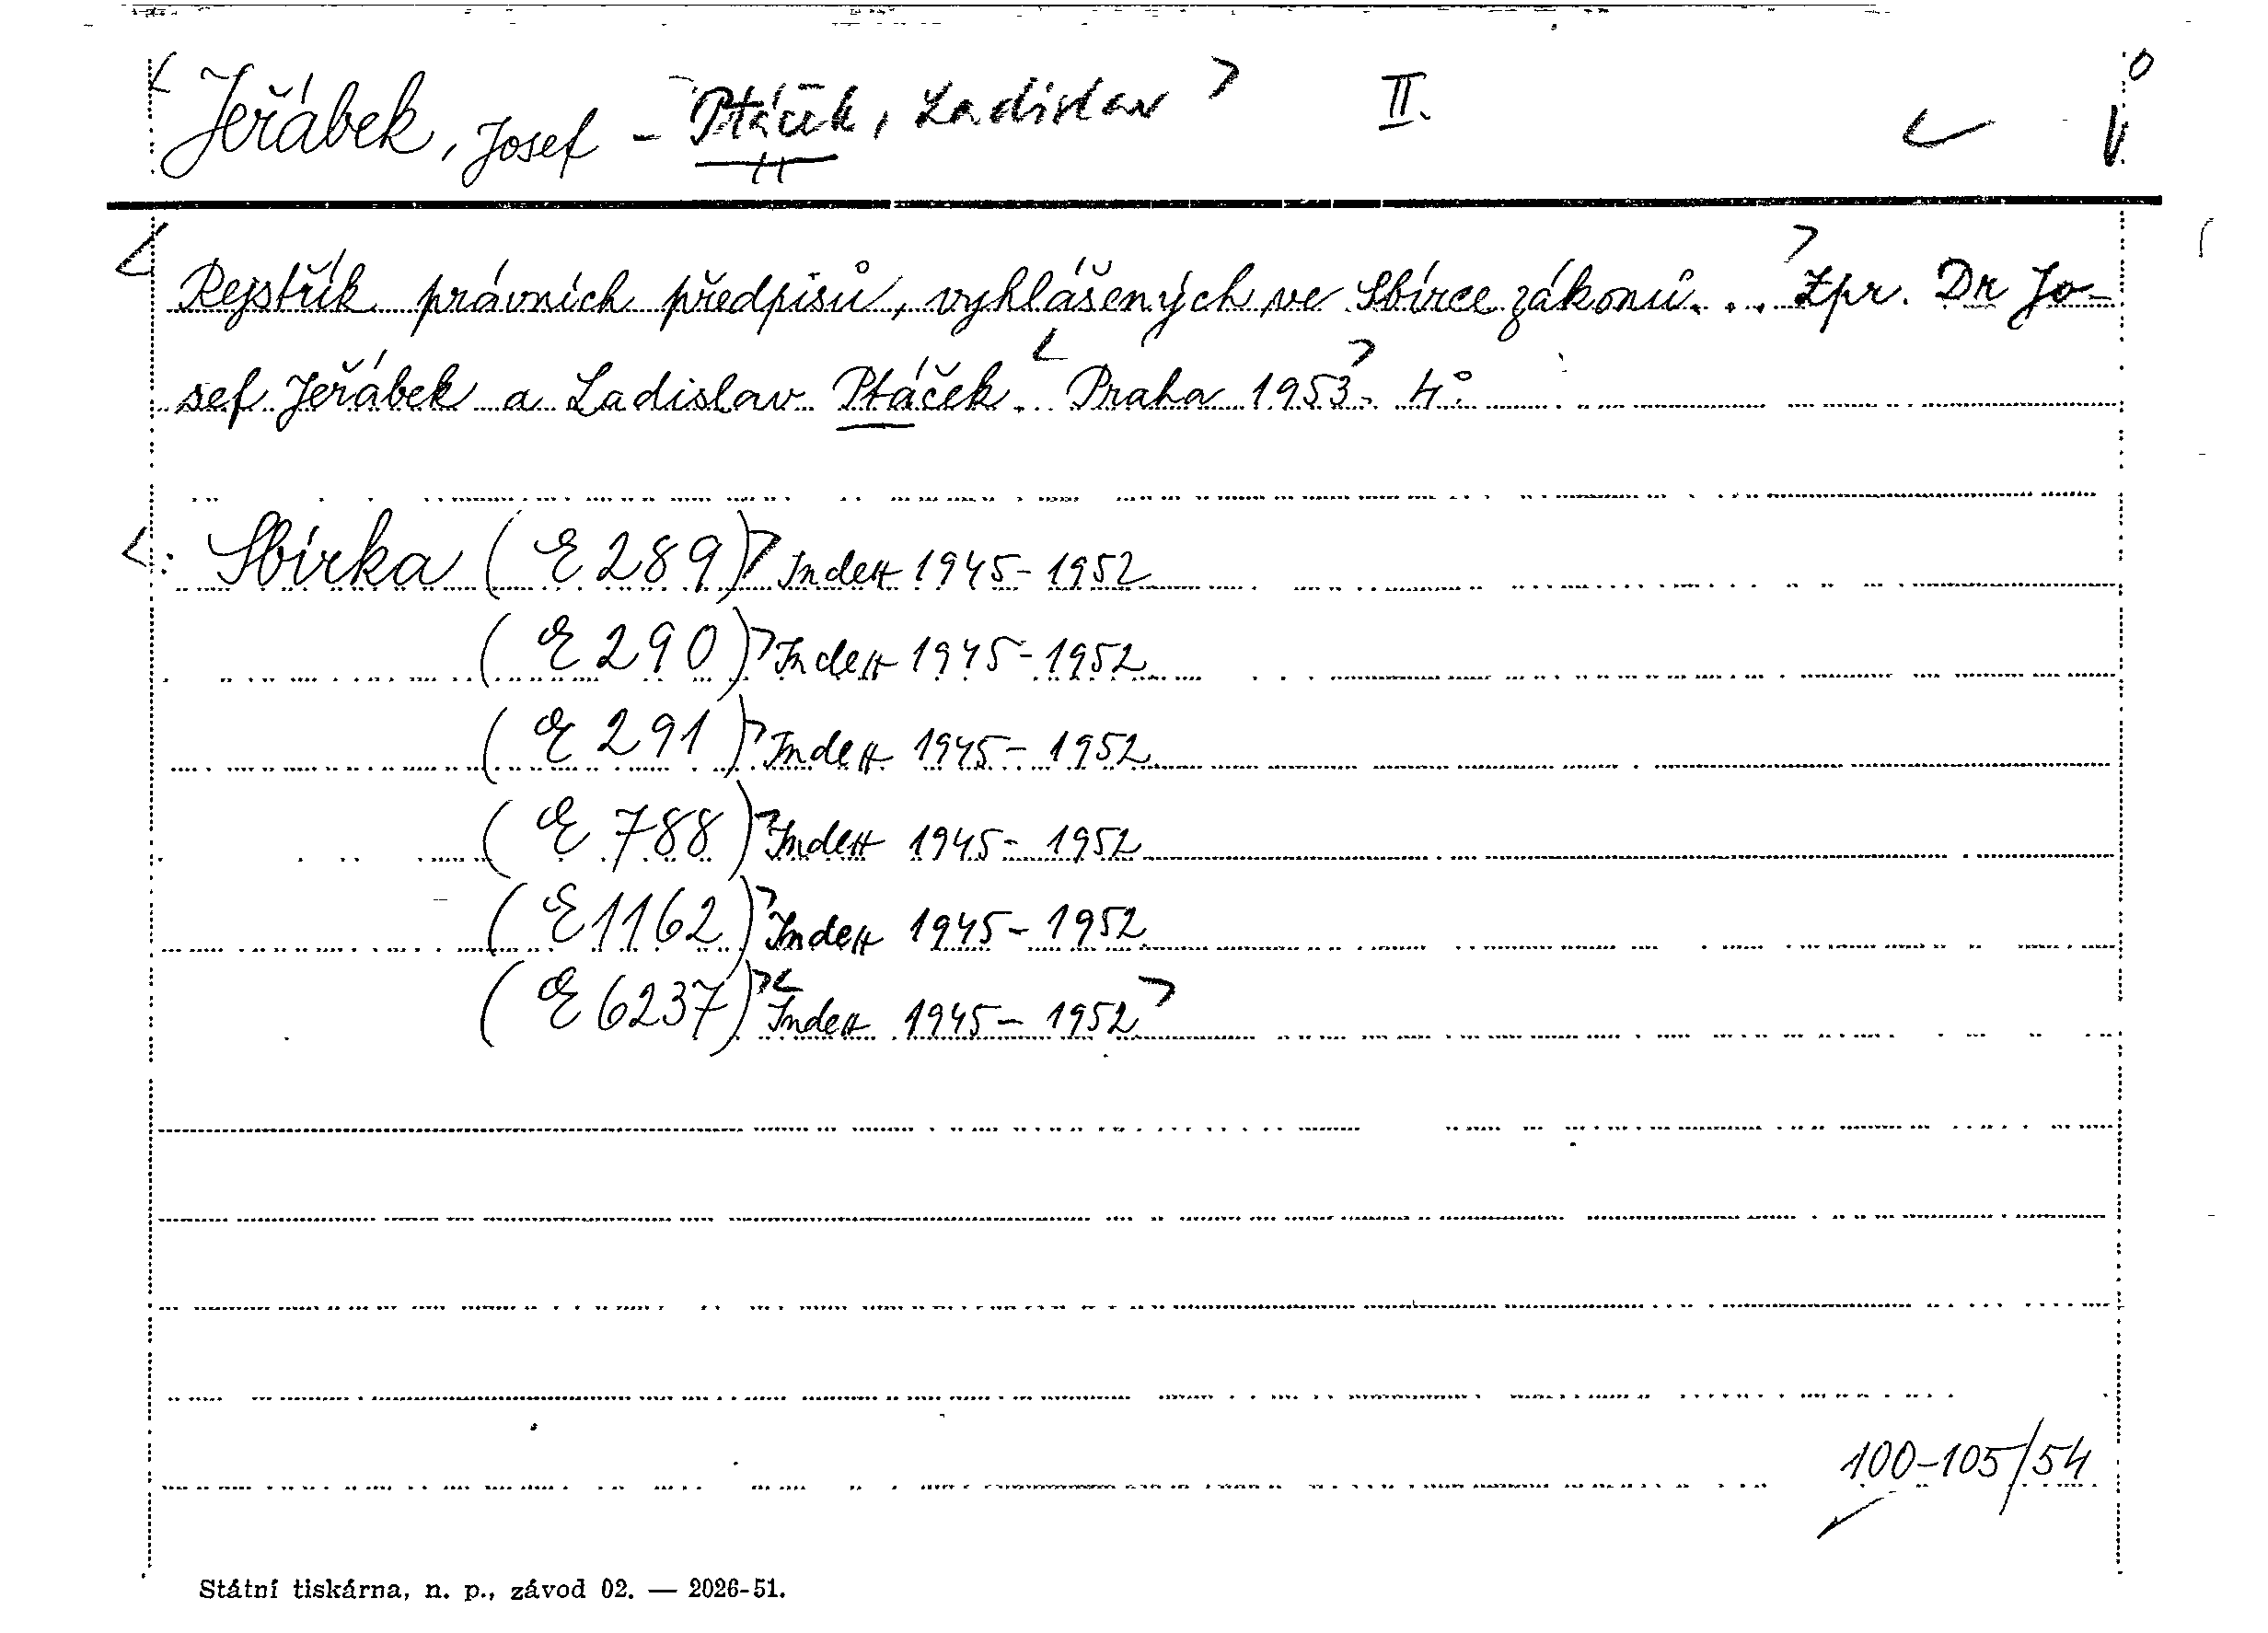 Jeřábek, Josef - Ptáček, Ladislav II.
Rejstřík právních předpisů, vyhlášených ve Sbírce zákonů... Zpr. Dr Jo-
sef Jeřábek a Ladislav Ptáček. Praha 1953. 4°.
Sbírka (E 289) Index 1945-1952
(E 290) Index 1945-1952
(E 291) Index 1945-1952
(E 788) Index 1945-1952
(E 1162) Index 1945-1952
(E 6237) Index 1945-1952
100-105/54
Státní tiskárna, n. p., závod 02. — 2026-51.